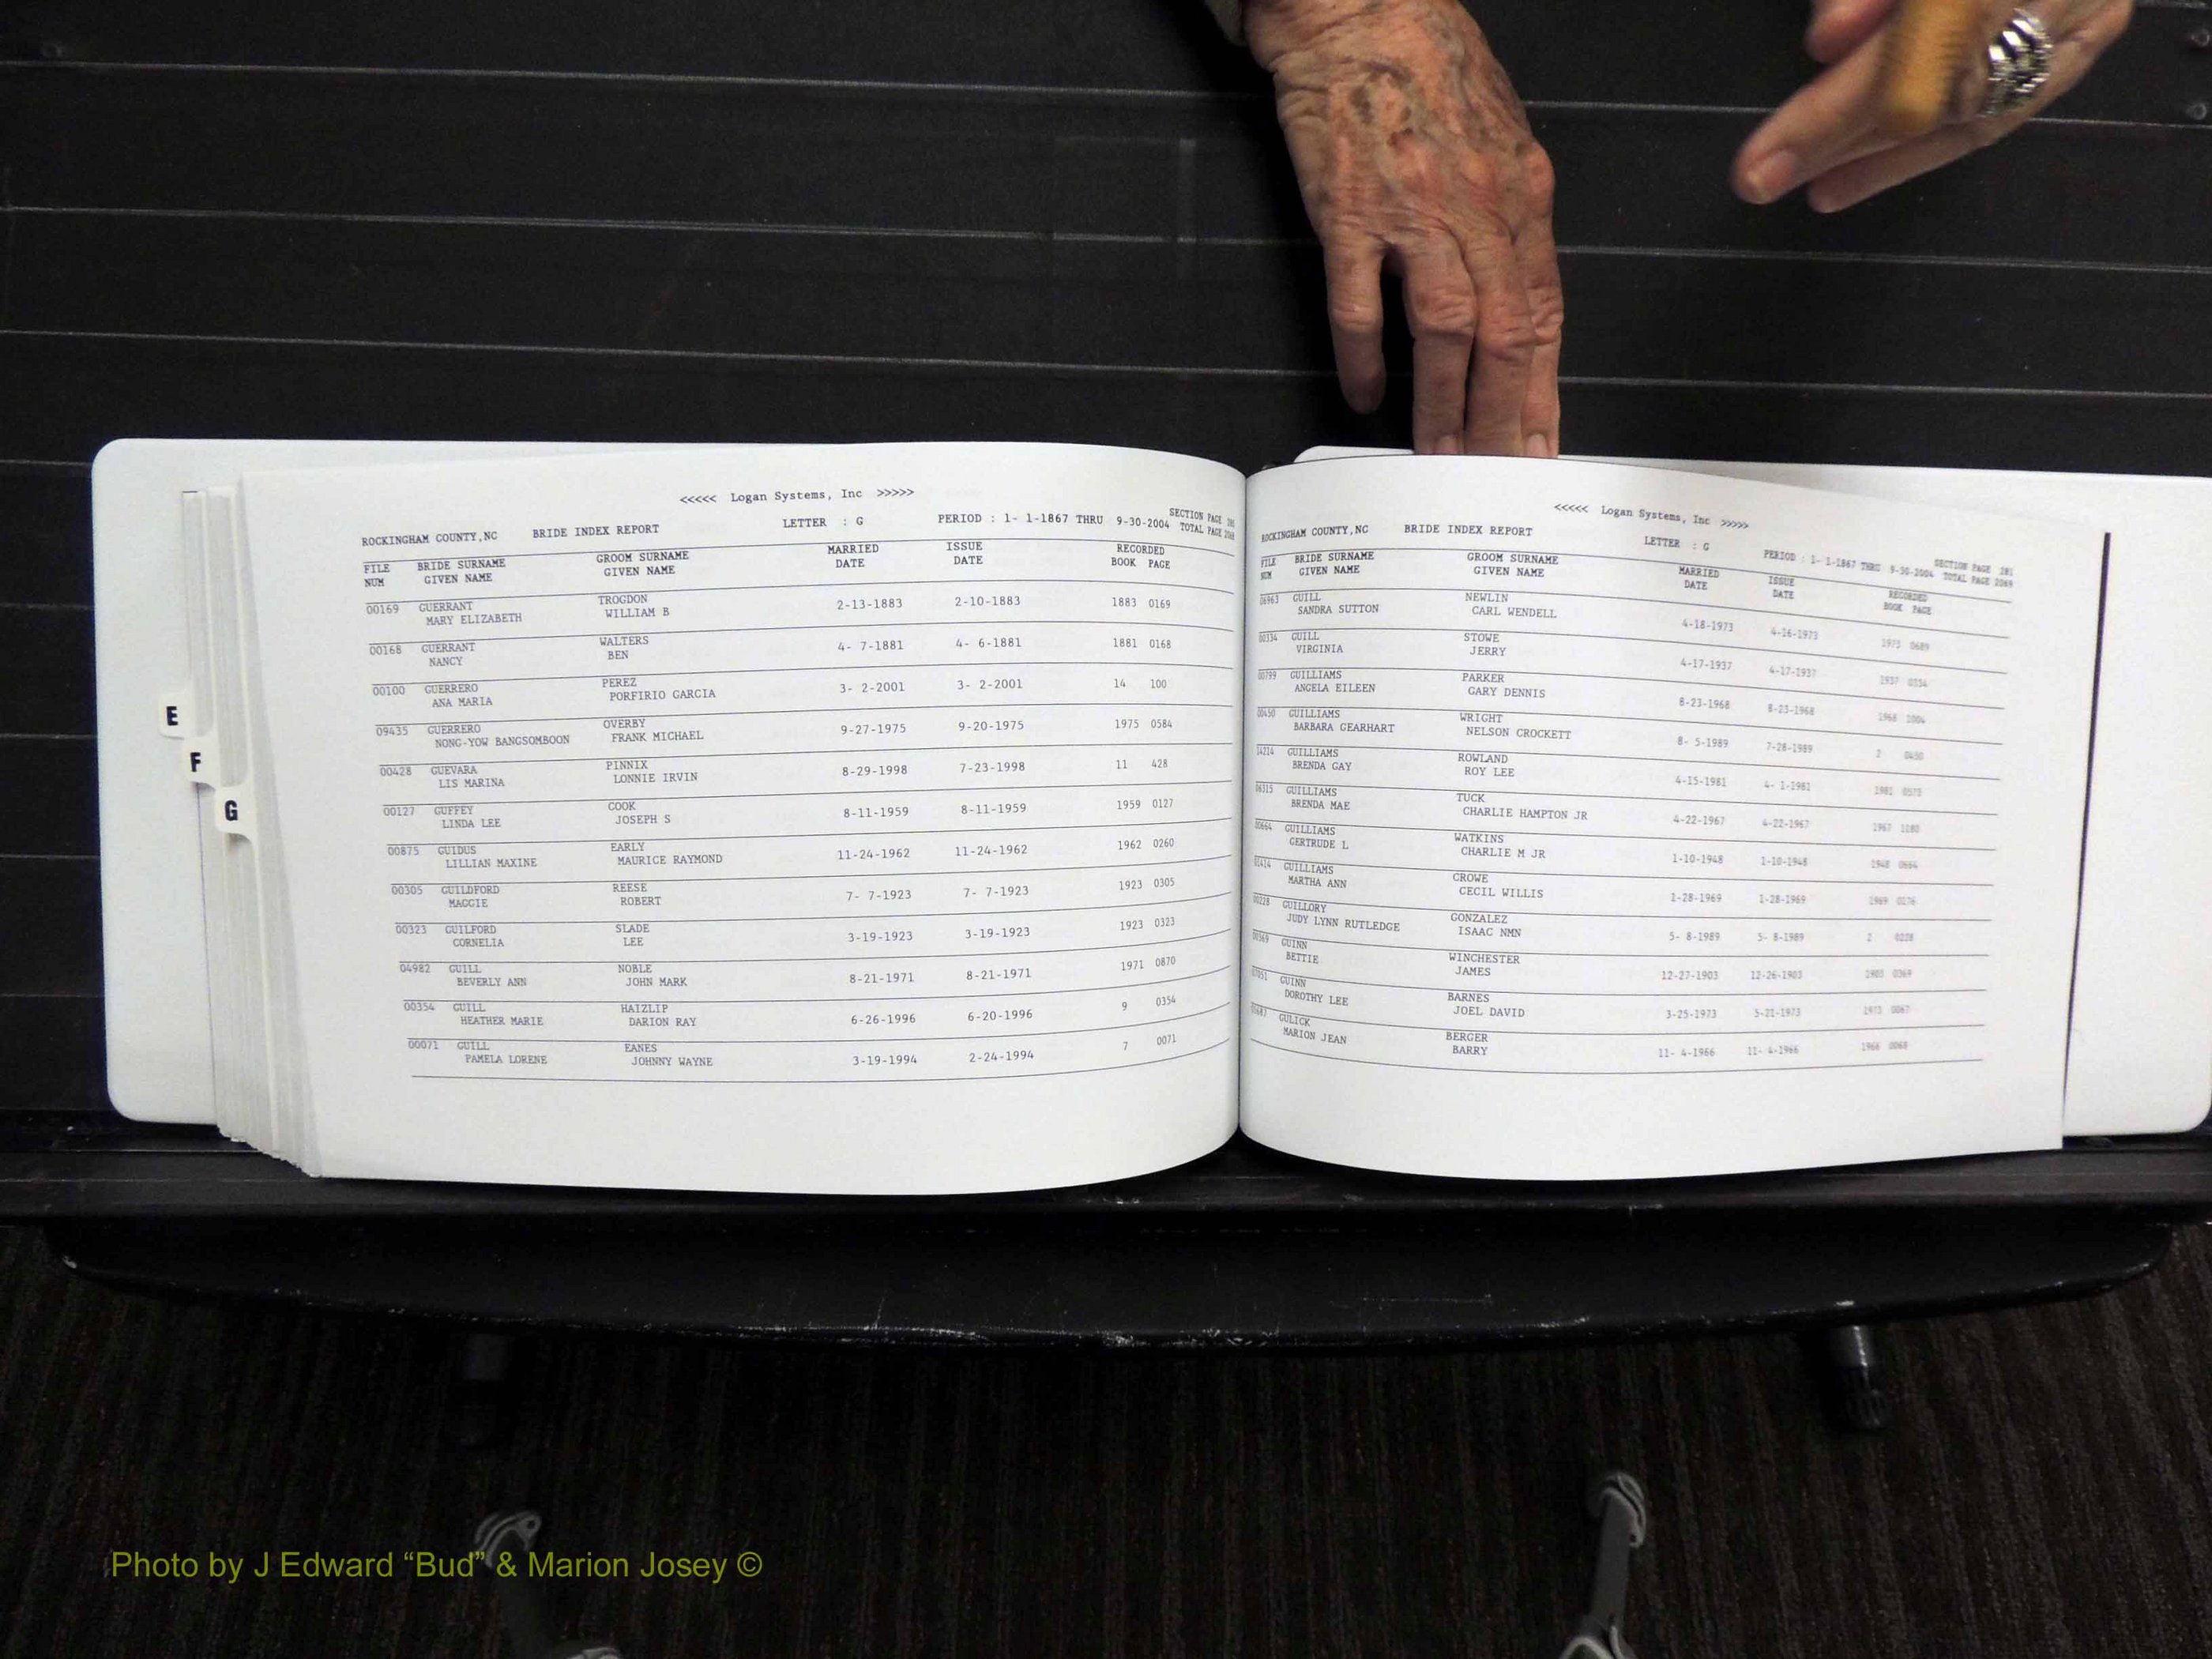 <<<<< Logan Systems, Inc >>>>>
ROCKINGHAM COUNTY,NC BRIDE INDEX REPORT LETTER : G PERIOD : 1- 1-1867 THRU 9-30-2004 SECTION PAGE
TOTAL PAGE
FILE BRIDE SURNAME GROOM SURNAME MARRIED ISSUE RECORDED
NUM GIVEN NAME GIVEN NAME DATE DATE BOOK PAGE
00169 GUERRANT TROGDON 2-13-1883 2-10-1883 1883 0169
MARY ELIZABETH WILLIAM B
00168 GUERRANT WALTERS 4- 7-1881 4- 6-1881 1881 0168
NANCY BEN
00100 GUERRERO PEREZ 3- 2-2001 3- 2-2001 14 100
ANA MARIA PORFIRIO GARCIA
09435 GUERRERO OVERBY 9-27-1975 9-20-1975 1975 0584
NONG-YOW BANGSOMBOON FRANK MICHAEL
00428 GUEVARA PINNIX 8-29-1998 7-23-1998 11 428
LIS MARINA LONNIE IRVIN
00127 GUFFEY COOK 8-11-1959 8-11-1959 1959 0127
LINDA LEE JOSEPH S
00875 GUIDUS EARLY 11-24-1962 11-24-1962 1962 0260
LILLIAN MAXINE MAURICE RAYMOND
00305 GUILDFORD REESE 7- 7-1923 7- 7-1923 1923 0305
MAGGIE ROBERT
00323 GUILFORD SLADE 3-19-1923 3-19-1923 1923 0323
CORNELIA LEE
04982 GUILL NOBLE 8-21-1971 8-21-1971 1971 0870
BEVERLY ANN JOHN MARK
00354 GUILL HAIZLIP 6-26-1996 6-20-1996 9 0354
HEATHER MARIE DARION RAY
00071 GUILL EANES 3-19-1994 2-24-1994 7 0071
PAMELA LORENE JOHNNY WAYNE
E
F
G
<<<<< Logan Systems, Inc >>>>>
ROCKINGHAM COUNTY,NC BRIDE INDEX REPORT LETTER : G PERIOD : 1- 1-1867 THRU 9-30-2004 SECTION PAGE 281
TOTAL PAGE 2069
FILE BRIDE SURNAME GROOM SURNAME MARRIED ISSUE RECORDED
NUM GIVEN NAME GIVEN NAME DATE DATE BOOK PAGE
06963 GUILL NEWLIN 4-18-1973 4-16-1973 1973 0689
SANDRA SUTTON CARL WENDELL
00334 GUILL STOWE 4-17-1937 4-17-1937 1937 0334
VIRGINIA JERRY
00799 GUILLIAMS PARKER 8-23-1968 8-23-1968 1968 1004
ANGELA EILEEN GARY DENNIS
00450 GUILLIAMS WRIGHT 8- 5-1989 7-28-1989 2 0450
BARBARA GEARHART NELSON CROCKETT
14214 GUILLIAMS ROWLAND 4-15-1981 4- 1-1981 1981
BRENDA GAY ROY LEE
06315 GUILLIAMS TUCK 4-22-1967 4-22-1967 1967
BRENDA MAE CHARLIE HAMPTON JR
00664 GUILLIAMS WATKINS 1-10-1948 1-10-1948 1948 0664
GERTRUDE L CHARLIE M JR
GUILLIAMS CROWE 1-28-1969 1-28-1969 1969 0176
MARTHA ANN CECIL WILLIS
00228 GUILLORY GONZALEZ 5- 8-1989 5- 8-1989 2 0228
JUDY LYNN RUTLEDGE ISAAC NMN
00369 GUINN WINCHESTER 12-27-1903 12-26-1903 1903 0369
BETTIE JAMES
GUINN BARNES 3-25-1973 1973
DOROTHY LEE JOEL DAVID
GULICK BERGER 11- 4-1966 11- 4-1966 1966 0068
MARION JEAN BARRY
Photo by J Edward “Bud” & Marion Josey ©